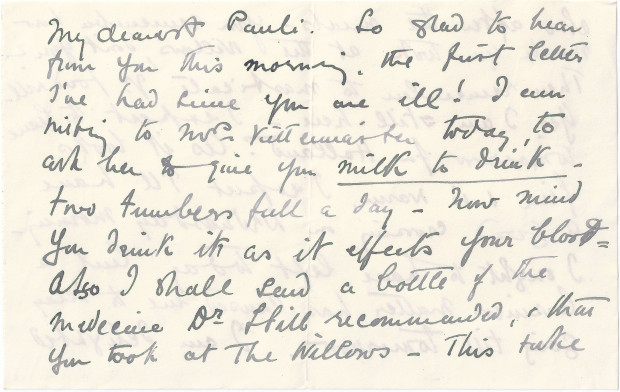 My dearest Pauli. So glad to hear
from you this morning, the first letter
I've had since you are ill! I am
writing to Mrs Kittermaster today, to
ask her to give you milk to drink -
two tumblers full a day - Now mind
you drink it as it effects your blood =
Also I shall send a bottle of the
medecine Dr Still recommended, & that
you took at The Willows - This take